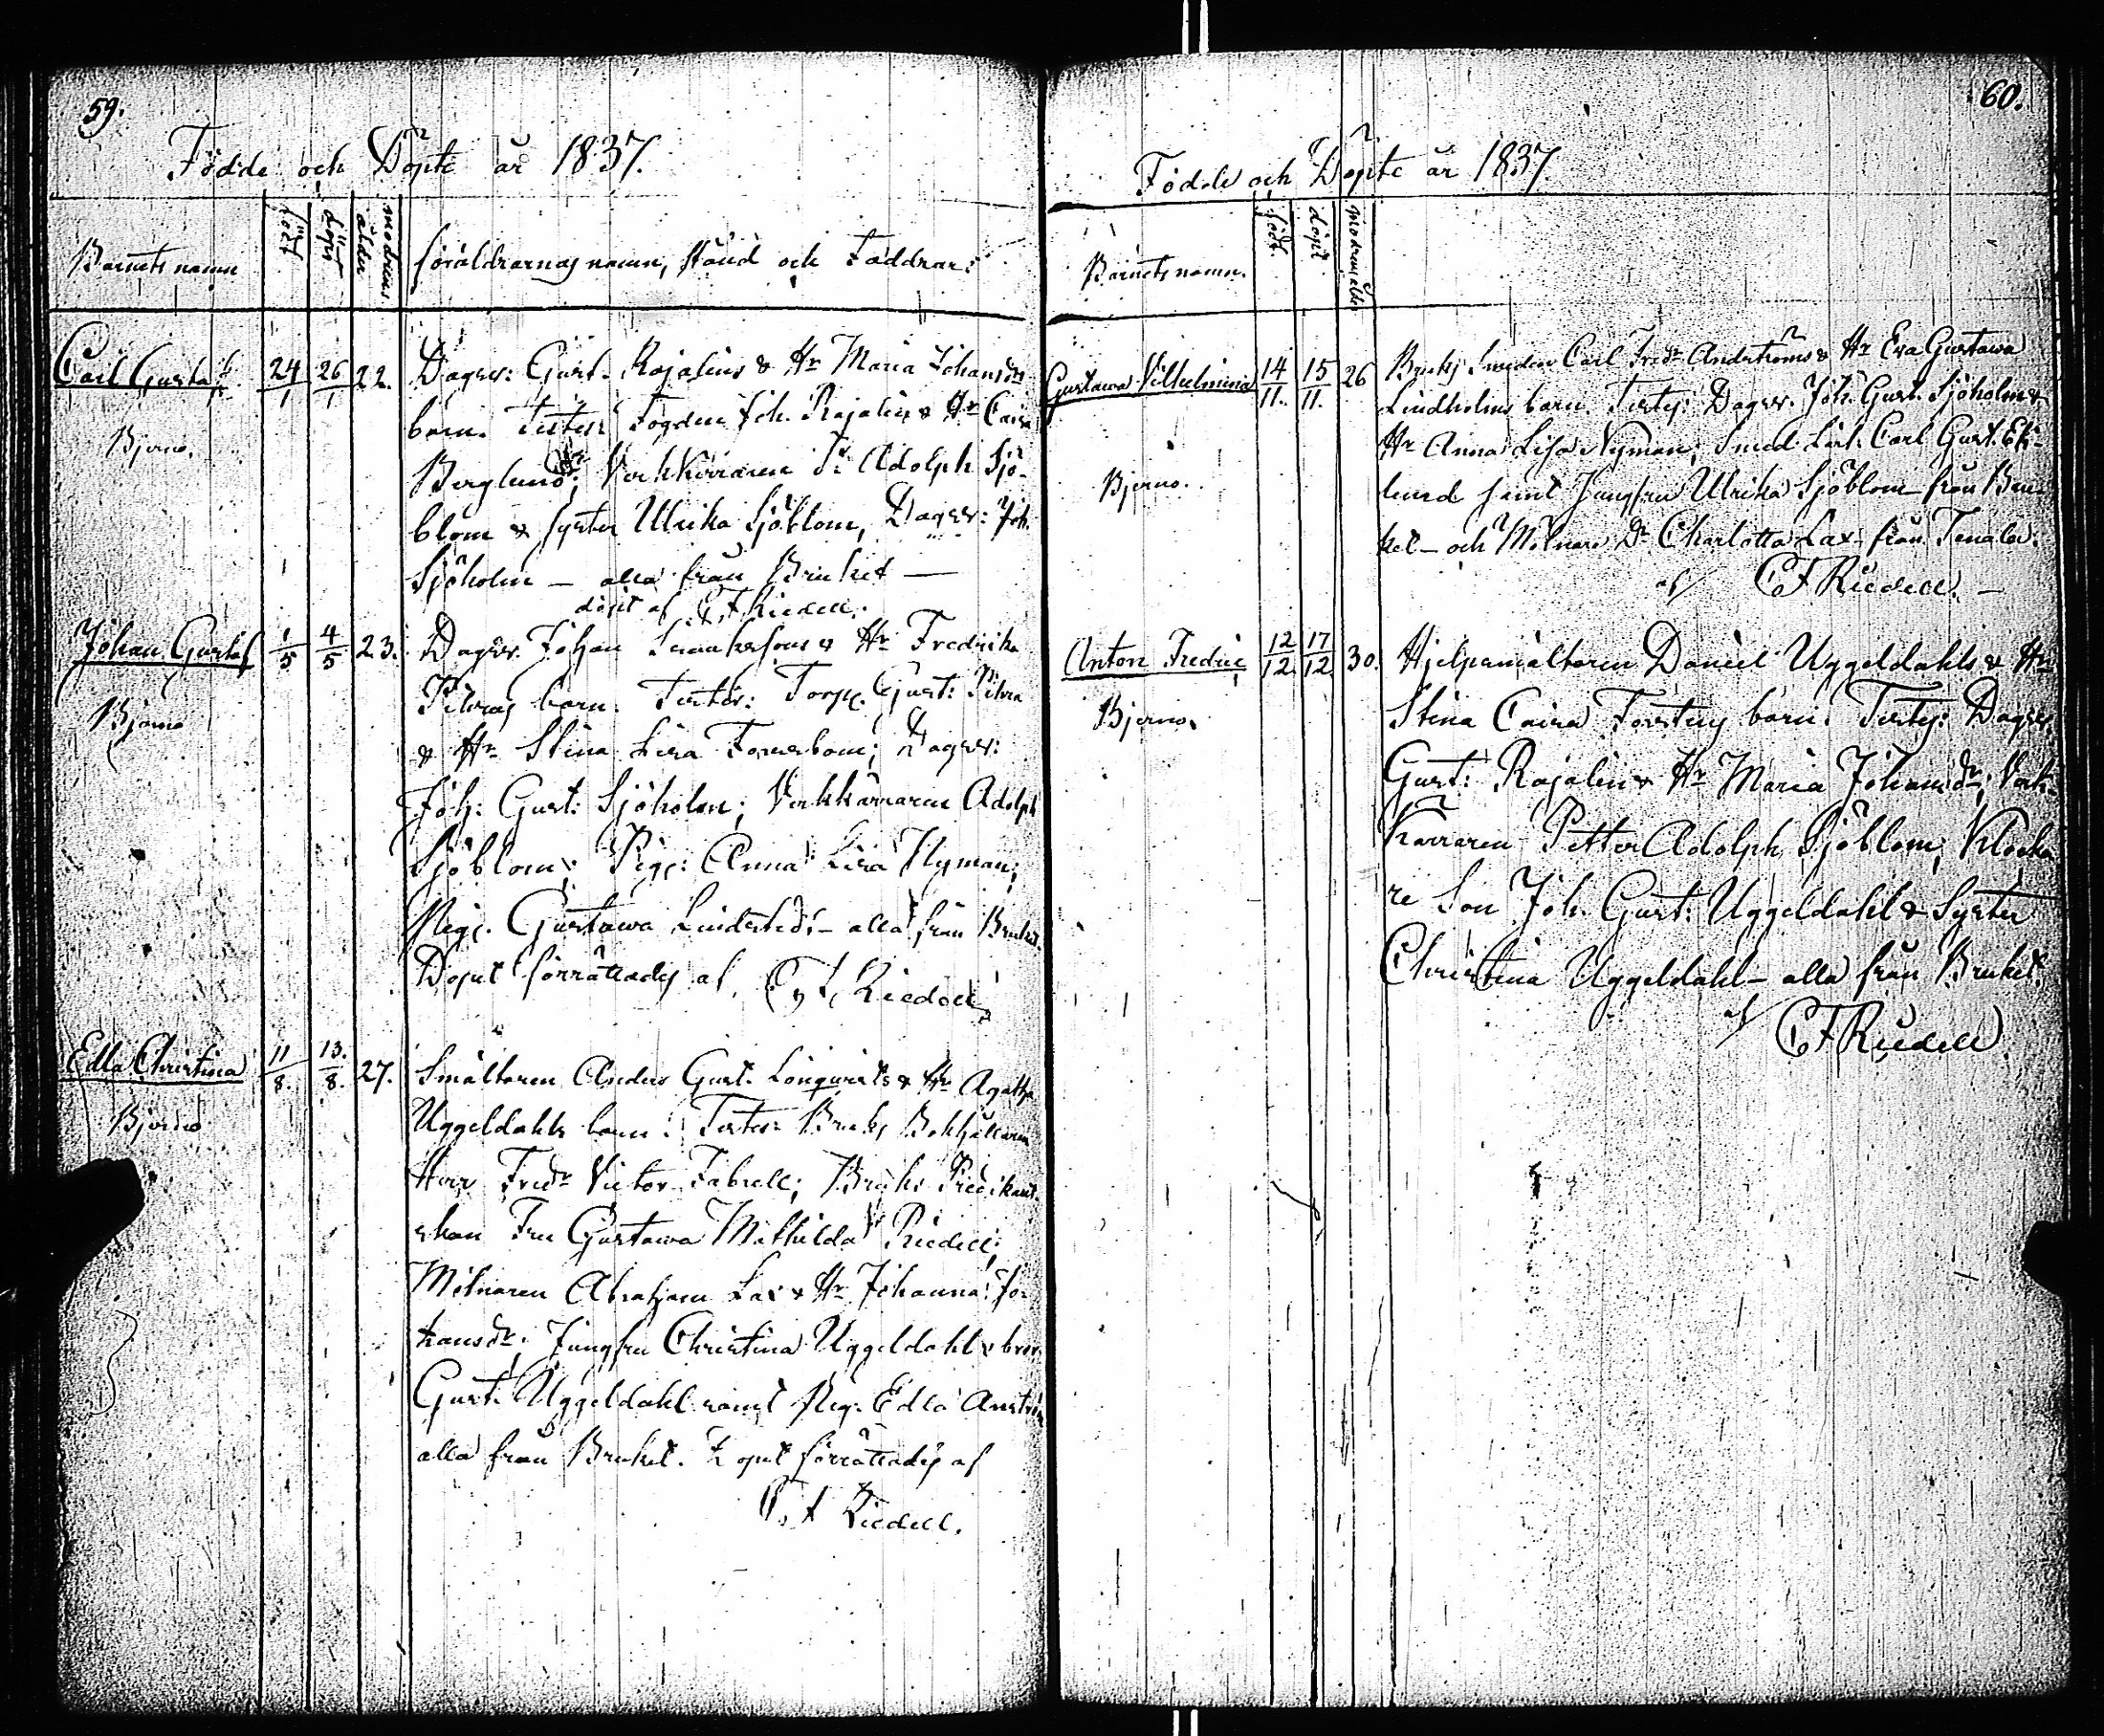 59.
Födde och Döpte år 1837.
Barnets namn
född
döpt
modrens ålder
föräldrarnas namn, stånd och Faddrar:
Carl Gustaf 24/1 26/1 22. Dagsv: Gust. Rajalins & Hr Maria Johansdrs
Bjerno.
barn. Testes: Fogden Joh. Rajalin & Hr Caisa
Berglund; Verkkörraren P: Adolph Sjö-
blom & syster Ulrika Sjöblom, Dagsv: Joh.
Sjöholm — alla från Bruket —
döpt af C F Riedell.
Johan Gustaf 1/5 4/5 23. Dagsv. Johan & Hr Fredrika
Bjerno
barn. Testes: Torp. Gust:
& Hr Stina Lisa; Dagsv:
Joh: Gust: Sjöholm; Verkkärraren Adolph
Sjöblom; Pig: Anna Lisa Nyman;
Pig. Gustawa Lindstedt — alla från Bruket.
Dopet förrättades af C F Riedell
Edla Christina 11/8. 13./8. 27. Smältaren Anders Gust. Lönqvists & Hr Agatha
Bjerno
Uggeldahls barn. Testes: Bruks Bokhållaren
Herr Fredr Victor Fabrell; Bruks Predikant-
skan Fru Gustawa Mathilda Riedell;
Mölnaren Abraham Lax & Hr Johanna Jo-
hansdr; Jungfru Christina Uggeldahl & bror
Gust. Uggeldahl samt Pig. Edla
alla från Bruket. Dopet förrättades af
C F Riedell.
60.
Födde och Döpte år 1837
Barnets namn.
född.
döpt
modrens ålder
Gustawa Vilhelmina 14/11. 15/11. 26 Bruks Smeden Carl Fredr Andströms & Hr Eva Gustawa
Bjerno.
Lindholms barn. Testes: Dagsv. Joh. Gust. Sjöholm &
Hr Anna Lisa Nyman; Smed Lärl. Carl Gust. Ek-
lund samt Jungfru Ulrika Sjöblom från Bru-
ket — och Mölnare Dr Charlotta Lax från Tenala.
af C F Riedell. —
Anton Fredric 12/12. 17/12. 30. Hjelpsmältaren Daniel Uggeldahls & Hr
Bjerno.
Stina Caisa barn. Testes: Dagsv.
Gust: Rajalin & Hr Maria Johansdr; Verk-
Karraren Petter Adolph Sjöblom; Klocka-
re Son Joh. Gust: Uggeldahl & Syster
Christina Uggeldahl — alla från Bruket.
af C F Riedell